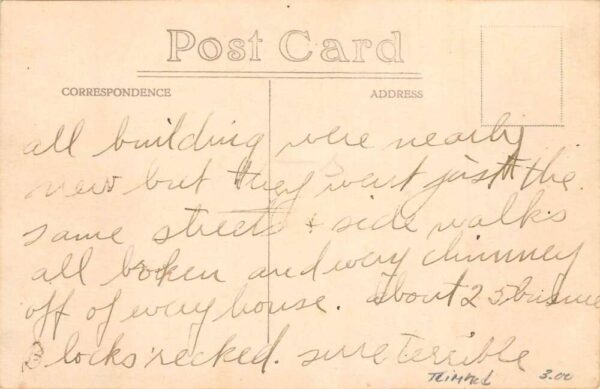 Post Card
CORRESPONDENCE
ADDRESS
all building were nearly
new but they went just the
same streets + side walks
all broken and every chimney
off of every house. about 25 busines
blocks recked. sure terrible
3.00